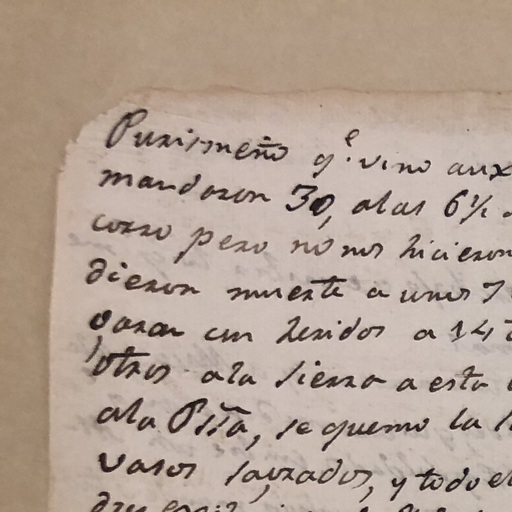 Purismeño q.e vino aux
mandaron 30, alas 6½
corro pero no nos hicieron
dieron muerte a unos 7
garon con heridos a 14
otros ala sierra a esta
ala Pssa, se quemo la
vasos sagrados, y todo el